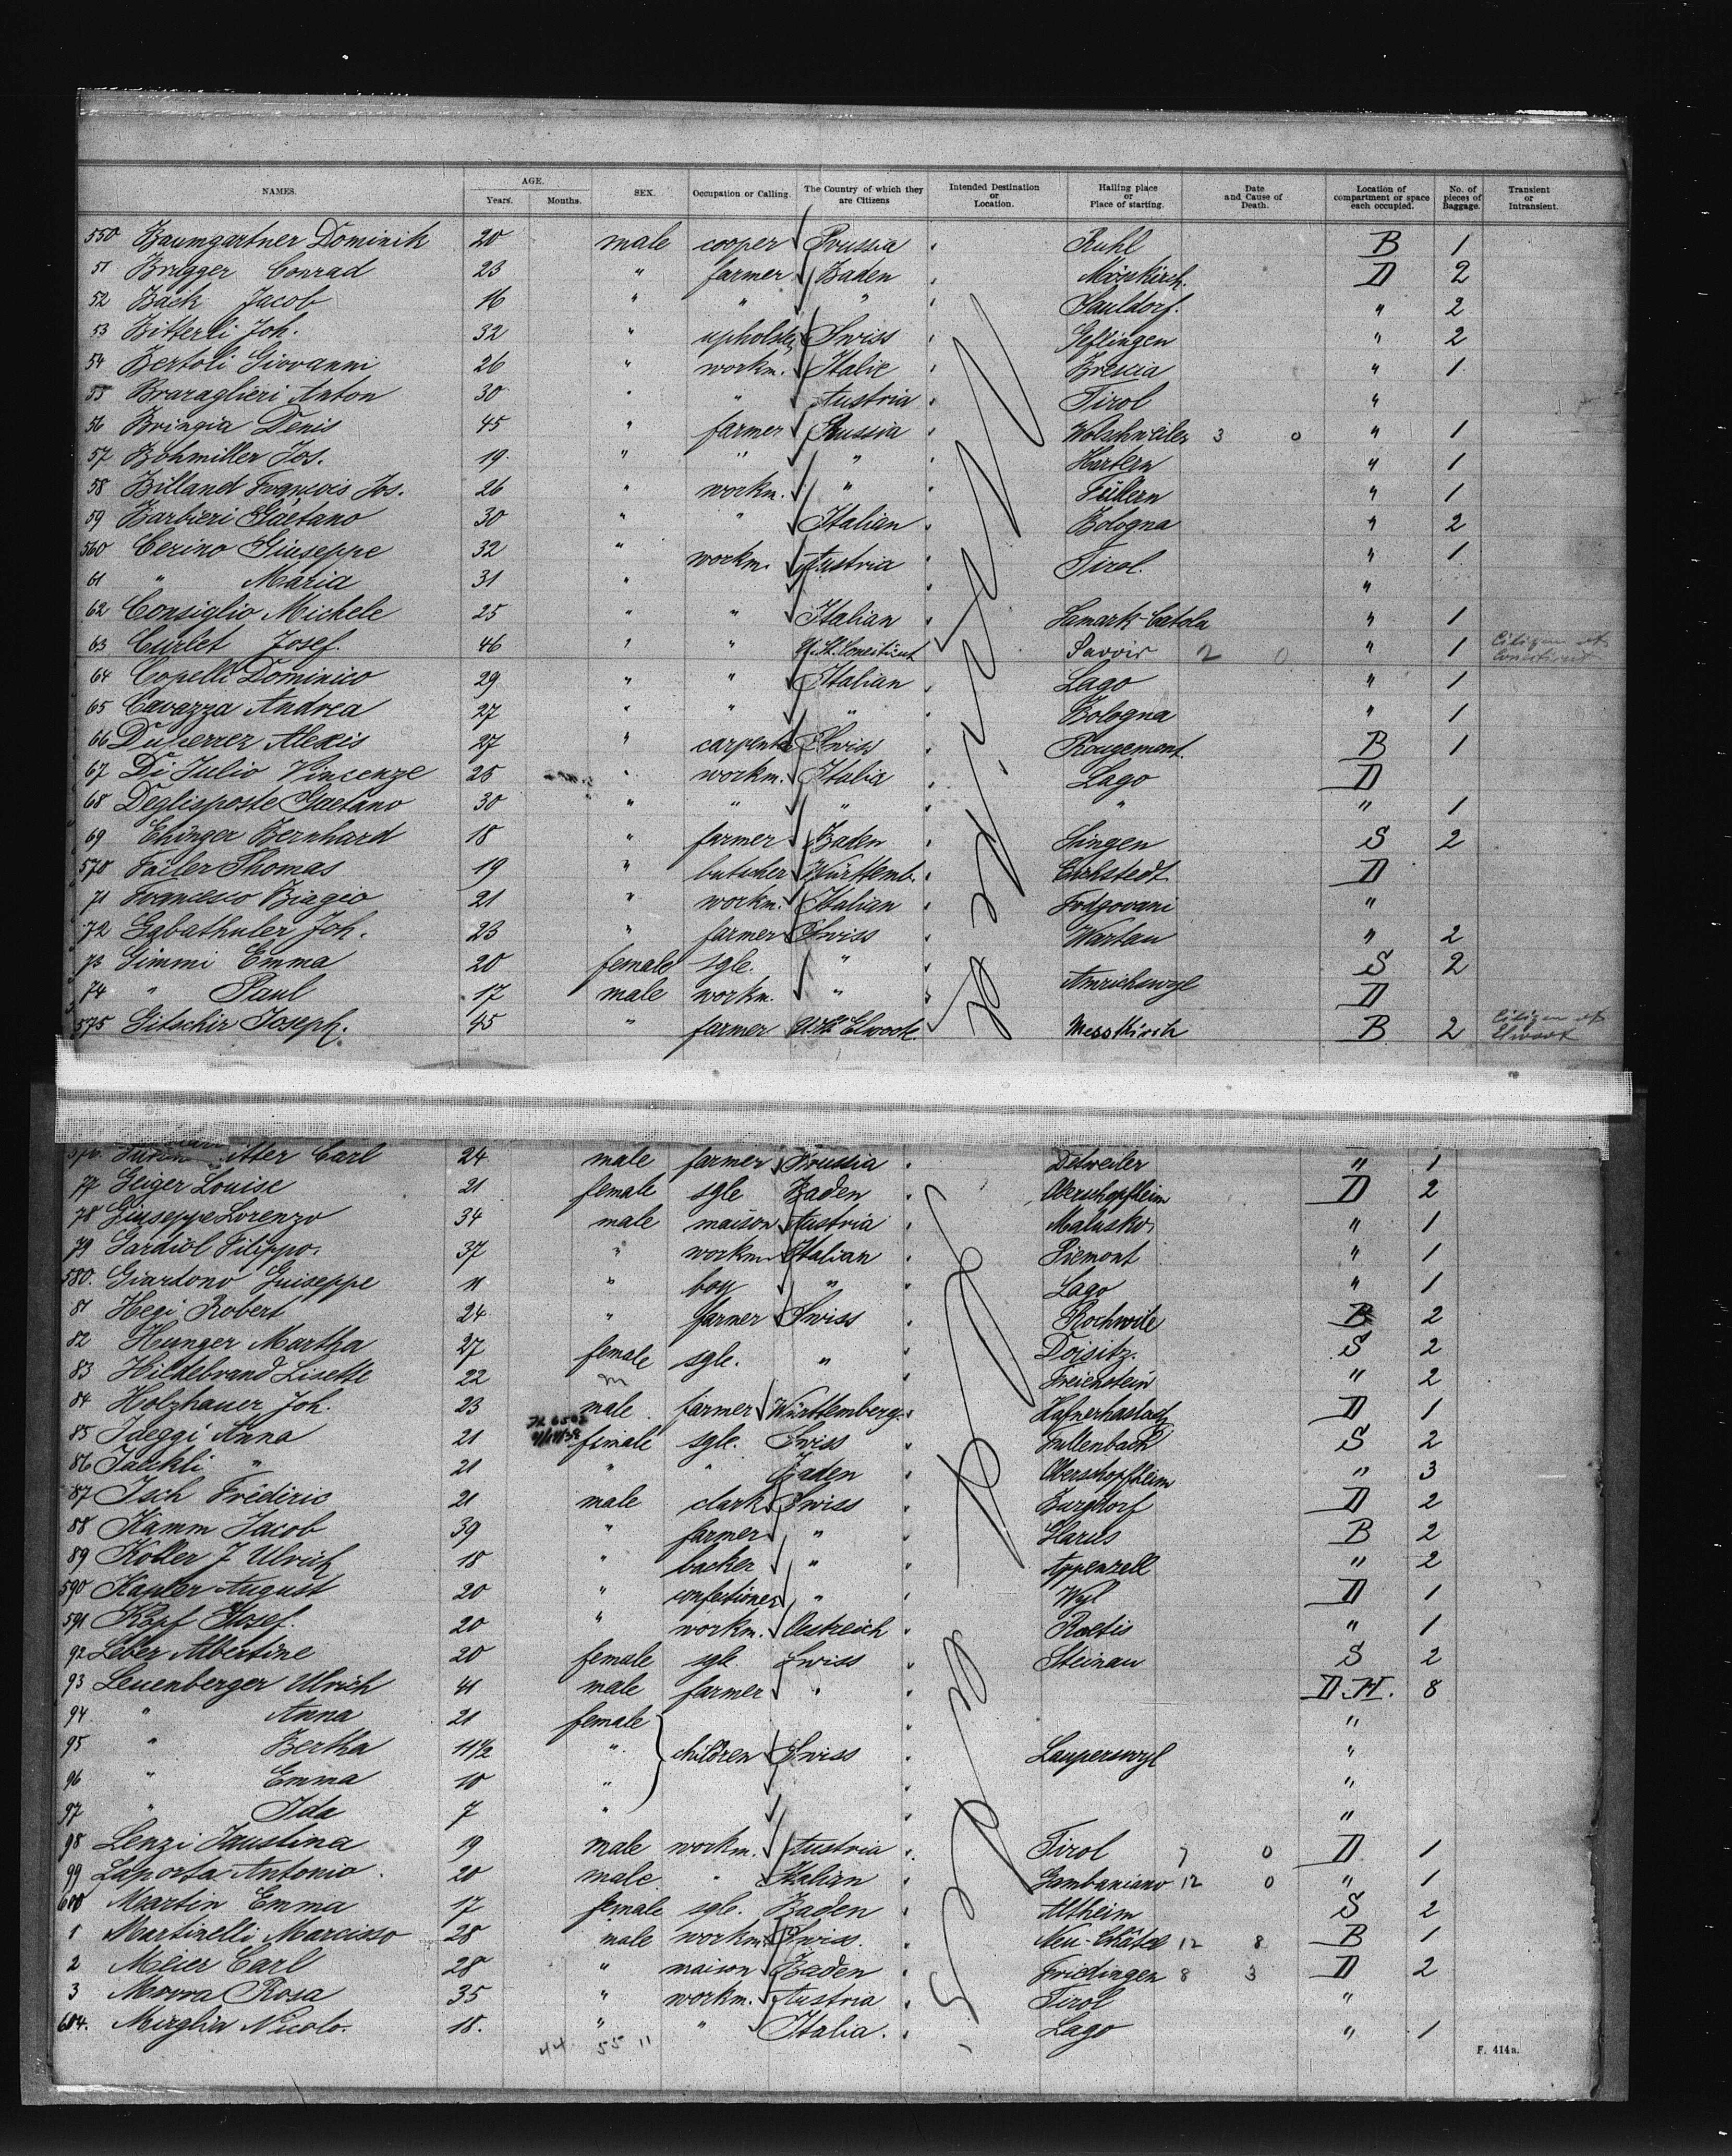 NAMES. AGE. Years. Months. SEX. Occupation or Calling. The Country of which they are Citizens Intended Destination or Location. Hailing place or Place of starting. Date and Cause of Death. Location of compartment or space each occupied. No. of pieces of Baggage. Transient or Intransient.
550 Baumgartner Dominik 20 male cooper Prussia Ruhl B 1
51 Brugger Conrad 23 " farmer Baden Mösskirch. D 2
52 Back Jacob 16 " " " Sauldorf. " 2
53 Bitterli Joh. 32 " upholster Swiss " 2
54 Bertoli Giovanni 26 " workm. Italie Brescia " 1
55 Braraglieri Anton 30 " " Austria Tirol "
56 Bringia Denis 45 " farmer Prussia Wolschweiler 3 0 " 1
57 Bohmiller Jos. 19 " " " Hartern " 1
58 Billand François Jos. 26 " workm. " Füllern " 1
59 Barbieri Gaetano 30 " " Italian Bologna " 2
560 Cerino Giuseppe 32 " workm. Austria Tirol. " 1
61 " Maria 31 " "
62 Consiglio Michele 25 " " Italian Lamark-Catola " 1
63 Curlet Josef. 46 " " U.St. Conecticut Savoir 2 0 " 1 Citizen of Conecticut
64 Copelli Dominico 29 " " Italian Lago " 1
65 Cavazza Andrea 27 " " " Bologna " 1
66 Duperrer Alexis 27 " carpenter Swiss Rougemont. B 1
67 Di Julio Vincenze 25 " workm. Italia Lago D
68 Deglisposte Gaetano 30 " " " " " 1
69 Ehinger Bernhard 18 " farmer Baden Singen S 2
570 Failer Thomas 19 " butcher Württemb. D
71 Francesco Biagio 21 " workm. Italian "
72 Gabathuler Joh. 23 " farmer Swiss Wartau " 2
73 Gimmi Emma 20 female sgle. " S 2
74 " Paul 17 male workm. " Amrichswyl D
575 Gitschir Joseph. 45 " farmer U.St. Elwook. Messkirch B 2 Citizen of
Carl 24 male farmer Prussia Detweiler " 1
77 Geiger Louise 21 female sgle Baden Oberschopfheim D 2
78 Giuseppe Lorenzo 34 male maison Austria Malusko. " 1
79 Gardiol Filippo. 37 " workm Italian Piemont " 1
580. Giardono Guiseppe 11 " boy " Lago " 1
81 Hegi Robert 24 " farmer Swiss Rochwile B 2
82 Hunger Martha 27 female sgle. " S 2
83 Hildebrand Lisette 22 " Freienstein " 2
84 Holzhauer Joh. 23 male farmer Württemberg. Hafnerhaslach D 1
85 Ideggi Anna 21 female sgle. Swiss Fullenbach S 2
86 Jaeckli " 21 " " Baden Oberschopfheim " 3
87 Isch Fréderic 21 male clark Swiss Burgdorf D 2
88 Kamm Jacob 39 " farmer " Glarus B 2
89 Koller J Ulrich 18 " backer " Appenzell " 2
590 Kapler August 20 " confectioner " Wyl D 1
591 Köpf Josef. 20 " workm. Oestreich Roetis " 1
92 Leber Albertine 20 female sgle. Swiss Steinau S 2
93 Leuenberger Ulrich 41 male farmer " D.H. 8
94 " Anna 21 female "
95 " Bertha 11½ " children Swiss Lauperswyl "
96 " Emma 10 " "
97 " Ida 7 " "
98 Lenzi Faustina 19 male workm. Austria Tirol 7 0 D 1
99 Laporta Antonio. 20 male " Italian Gambaniano 12 0 " 1
600 Martin Emma 17 female sgle. Baden Altheim S 2
1 Martinelli Marcisso 28 male workm. Swiss. Neu-Châtel 12 8 B 1
2 Meier Carl 28 " maison Baden Fridingen 8 3 D 2
3 Morra Rosa 35 " workm. Austria Tirol "
604. Mirglia Nicolo. 18. " " Italia. Lago " 1
44 55 11
F. 414a.